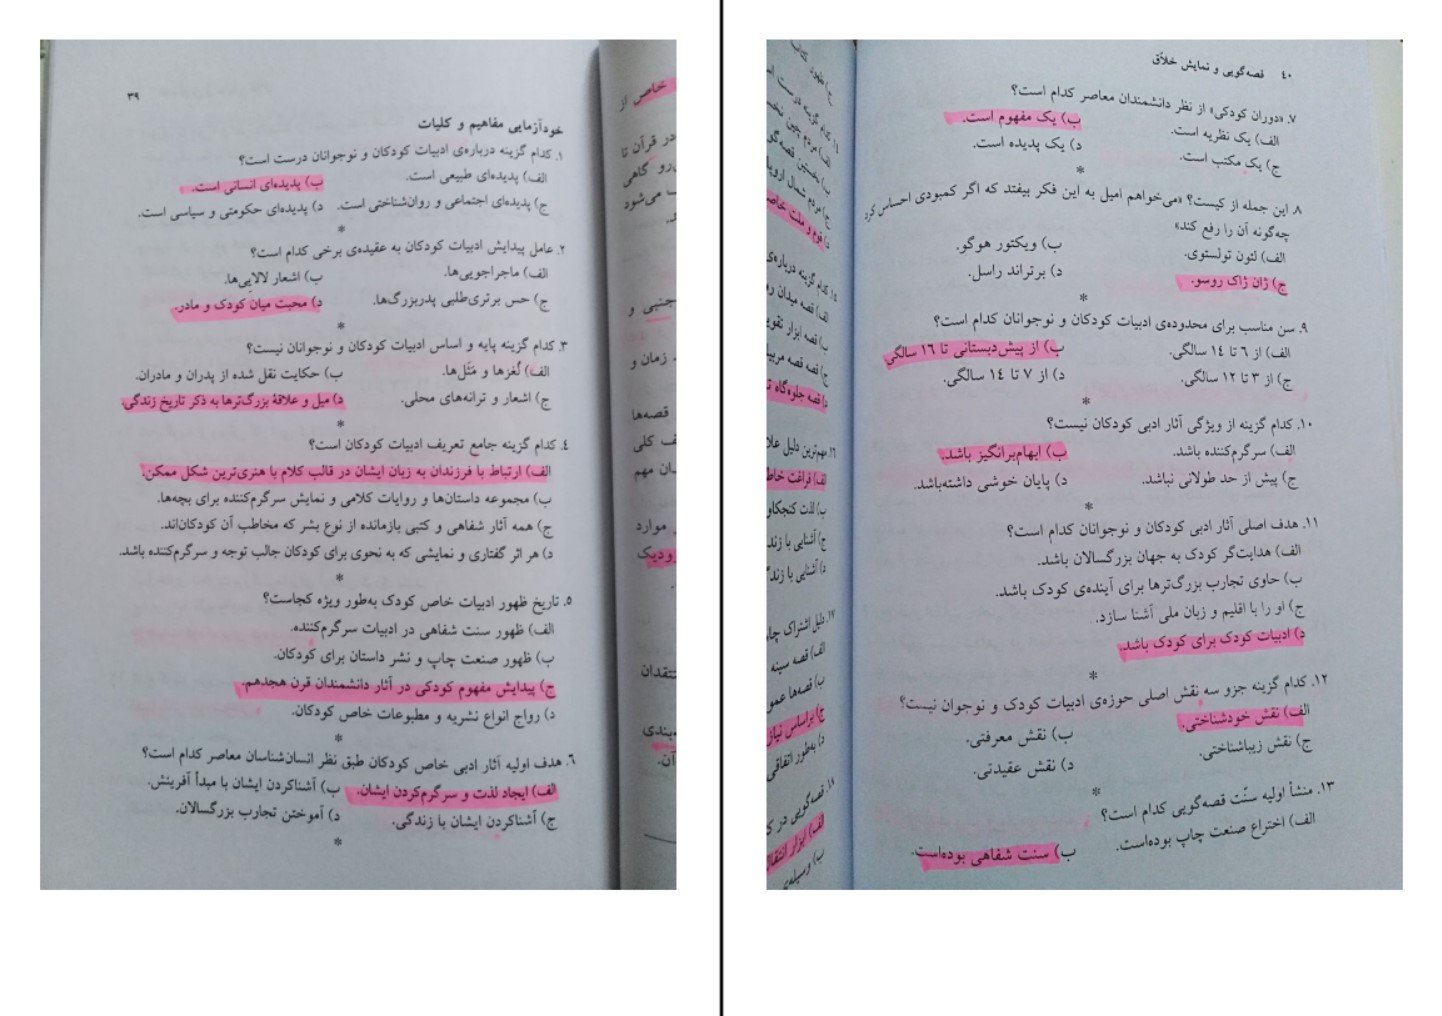 ۳۹
خودآزمایی مفاهیم و کلیات
۱. کدام گزینه درباره‌ی ادبیات کودکان و نوجوانان درست است؟
الف) پدیده‌ای طبیعی است. ب) پدیده‌ای انسانی است.
ج) پدیده‌ای اجتماعی و روان‌شناختی است. د) پدیده‌ای حکومتی و سیاسی است.
*
۲. عامل پیدایش ادبیات کودکان به عقیده‌ی برخی کدام است؟
الف) ماجراجویی‌ها. ب) اشعار لالایی‌ها.
ج) حس برتری‌طلبی پدربزرگ‌ها. د) محبت میان کودک و مادر.
*
۳. کدام گزینه پایه و اساس ادبیات کودکان و نوجوانان نیست؟
الف) لُغزها و مَثَل‌ها. ب) حکایت نقل شده از پدران و مادران.
ج) اشعار و ترانه‌های محلی. د) میل و علاقهٔ بزرگ‌ترها به ذکر تاریخ زندگی.
*
۴. کدام گزینه جامع تعریف ادبیات کودکان است؟
الف) ارتباط با فرزندان به زبان ایشان در قالب کلام با هنری‌ترین شکل ممکن.
ب) مجموعه داستان‌ها و روایات کلامی و نمایش سرگرم‌کننده برای بچه‌ها.
ج) همه آثار شفاهی و کتبی بازمانده از نوع بشر که مخاطب آن کودکان‌اند.
د) هر اثر گفتاری و نمایشی که به نحوی برای کودکان جالب توجه و سرگرم‌کننده باشد.
*
۵. تاریخ ظهور ادبیات خاص کودک به‌طور ویژه کجاست؟
الف) ظهور سنت شفاهی در ادبیات سرگرم‌کننده.
ب) ظهور صنعت چاپ و نشر داستان برای کودکان.
ج) پیدایش مفهوم کودکی در آثار دانشمندان قرن هجدهم.
د) رواج انواع نشریه و مطبوعات خاص کودکان.
*
۶. هدف اولیه آثار ادبی خاص کودکان طبق نظر انسان‌شناسان معاصر کدام است؟
الف) ایجاد لذت و سرگرم‌کردن ایشان. ب) آشناکردن ایشان با مبدأ آفرینش.
ج) آشناکردن ایشان با زندگی. د) آموختن تجارب بزرگسالان.
*
۴۰ قصه‌گویی و نمایش خلاّق
۷. «دوران کودکی» از نظر دانشمندان معاصر کدام است؟
الف) یک نظریه است. ب) یک مفهوم است.
ج) یک مکتب است. د) یک پدیده است.
*
۸. این جمله از کیست؟ «می‌خواهم امیل به این فکر بیفتد که اگر کمبودی احساس کرد
چه‌گونه آن را رفع کند»
الف) لئون تولستوی. ب) ویکتور هوگو.
ج) ژان ژاک روسو. د) برتراند راسل.
*
۹. سن مناسب برای محدوده‌ی ادبیات کودکان و نوجوانان کدام است؟
الف) از ۶ تا ۱۴ سالگی. ب) از پیش‌دبستانی تا ۱۶ سالگی
ج) از ۳ تا ۱۲ سالگی. د) از ۷ تا ۱۴ سالگی.
*
۱۰. کدام گزینه از ویژگی آثار ادبی کودکان نیست؟
الف) سرگرم‌کننده باشد. ب) ابهام‌برانگیز باشد.
ج) پیش از حد طولانی نباشد. د) پایان خوشی داشته‌باشد.
*
۱۱. هدف اصلی آثار ادبی کودکان و نوجوانان کدام است؟
الف) هدایت‌گر کودک به جهان بزرگسالان باشد.
ب) حاوی تجارب بزرگ‌ترها برای آینده‌ی کودک باشد.
ج) او را با اقلیم و زبان ملی آشنا سازد.
د) ادبیات کودک برای کودک باشد.
*
۱۲. کدام گزینه جزو سه نقش اصلی حوزه‌ی ادبیات کودک و نوجوان نیست؟
الف) نقش خودشناختی. ب) نقش معرفتی.
ج) نقش زیباشناختی. د) نقش عقیدتی.
*
۱۳. منشأ اولیه سنّت قصه‌گویی کدام است؟
الف) اختراع صنعت چاپ بوده‌است. ب) سنت شفاهی بوده‌است.